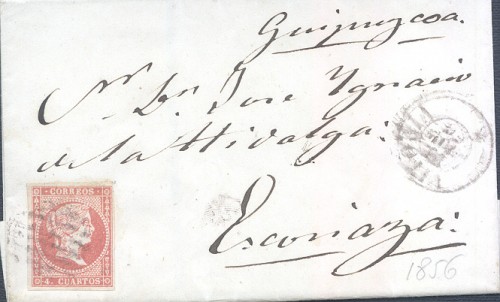 Guipuzcoa.
Sr. Dn. Jose Ygnacio
de la Hidalga.
Escoriaza.
CORREOS
4. CUARTOS
VITORIA
1856